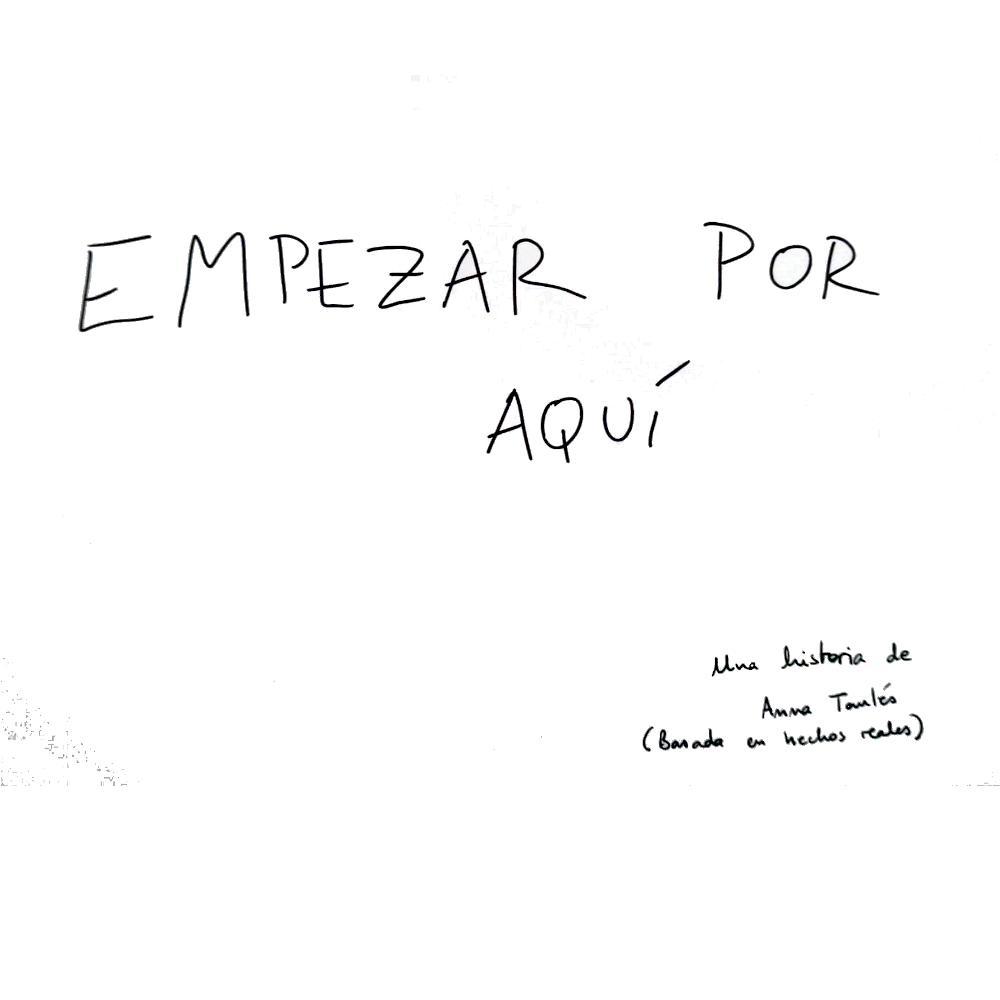 EMPEZAR POR
AQUÍ
Una historia de
Anna Taulés
(Basada en hechos reales)